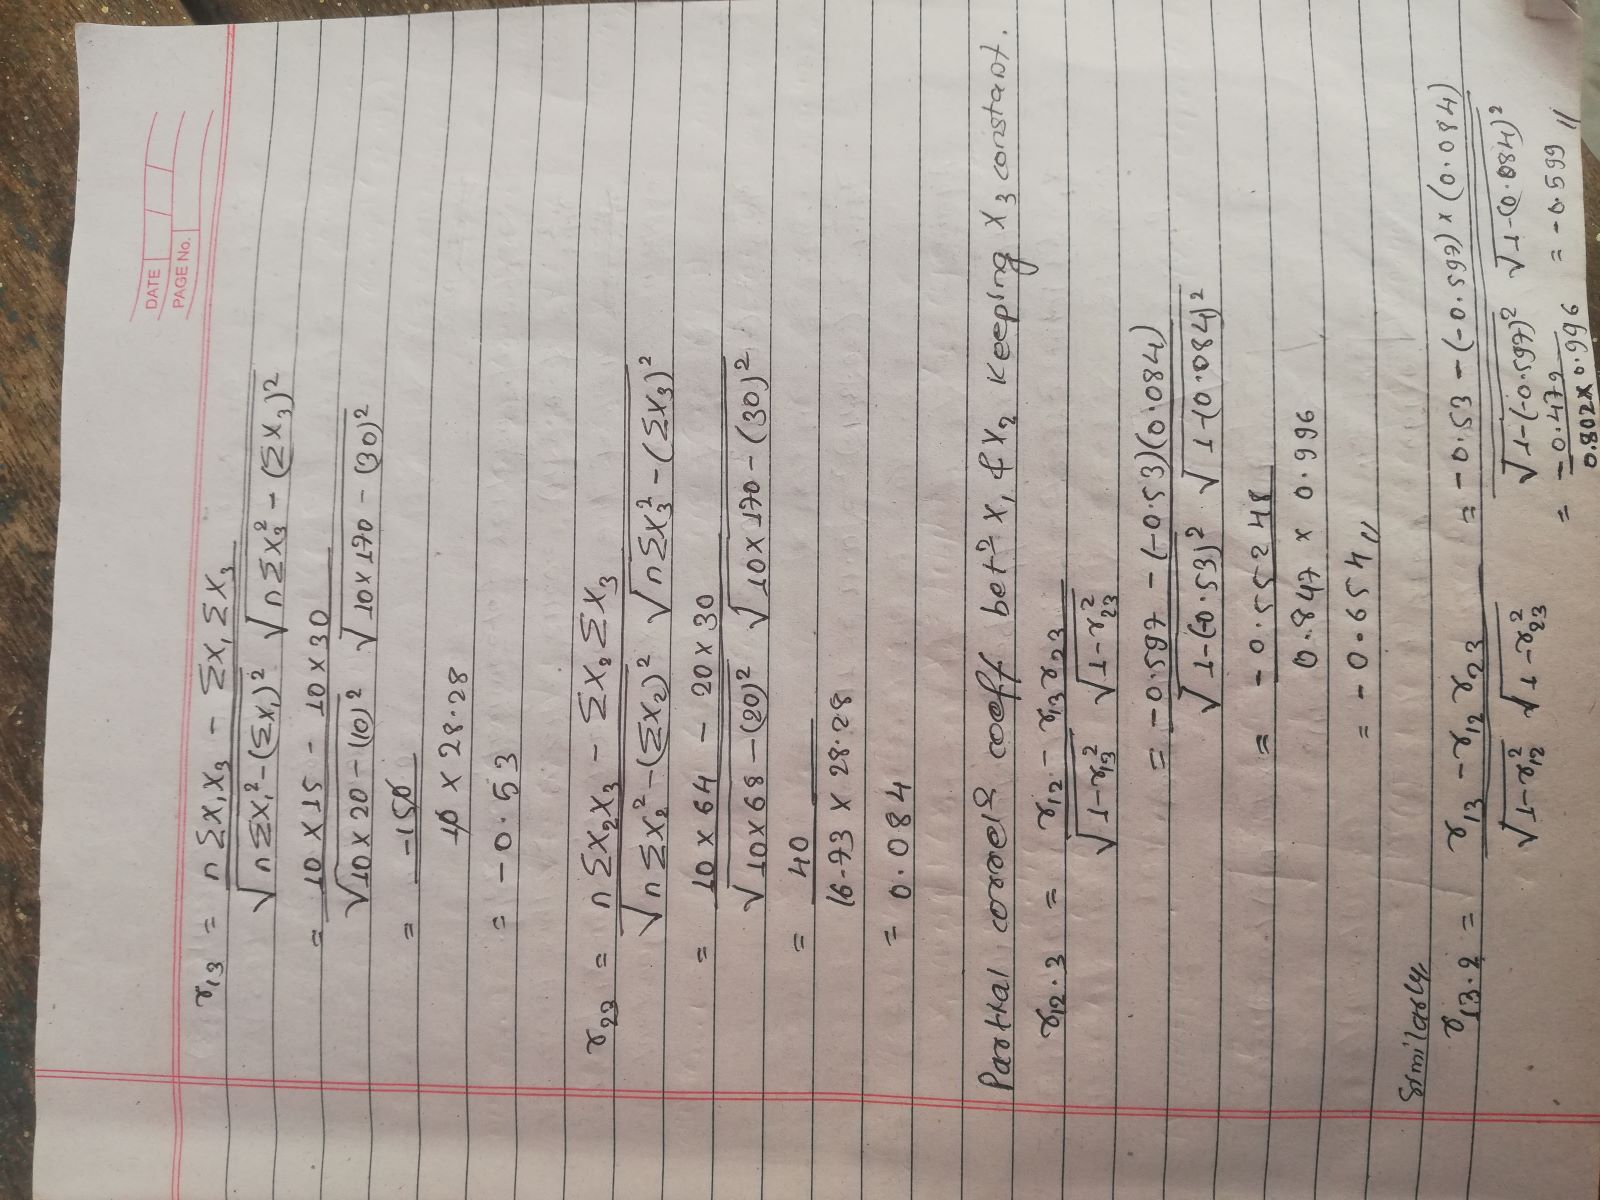 DATE
PAGE No.
r₁₃ = n ΣX₁X₃ - ΣX₁ ΣX₃
√nΣX₁²-(ΣX₁)² √nΣX₃² - (ΣX₃)²
= 10 × 15 - 10 × 30
√10 × 20 - (10)² √10 × 170 - (30)²
= -150
10 × 28.28
= -0.53
r₂₃ = n ΣX₂X₃ - ΣX₂ ΣX₃
√n ΣX₂² - (ΣX₂)² √nΣX₃² - (ΣX₃)²
= 10 × 64 - 20 × 30
√10×68 - (20)² √10 × 170 - (30)²
= 40
16.73 × 28.28
= 0.084
Partial correlⁿ coeff betⁿ X₁ & X₂ keeping X₃ constant.
r₁₂.₃ = r₁₂ - r₁₃ r₂₃
√1-r₁₃² √1-r₂₃²
= -0.597 - (-0.53)(0.084)
√1-(-0.53)² √1-(0.084)²
= -0.55248
0.847 × 0.996
= -0.654 //
Similarly,
r₁₃.₂ = r₁₃ - r₁₂ r₂₃ = -0.53 - (-0.597) × (0.084)
√1-r₁₂² √1-r₂₃² √1-(-0.597)² √1-(0.084)²
= -0.479 = -0.599 //
0.802 × 0.996